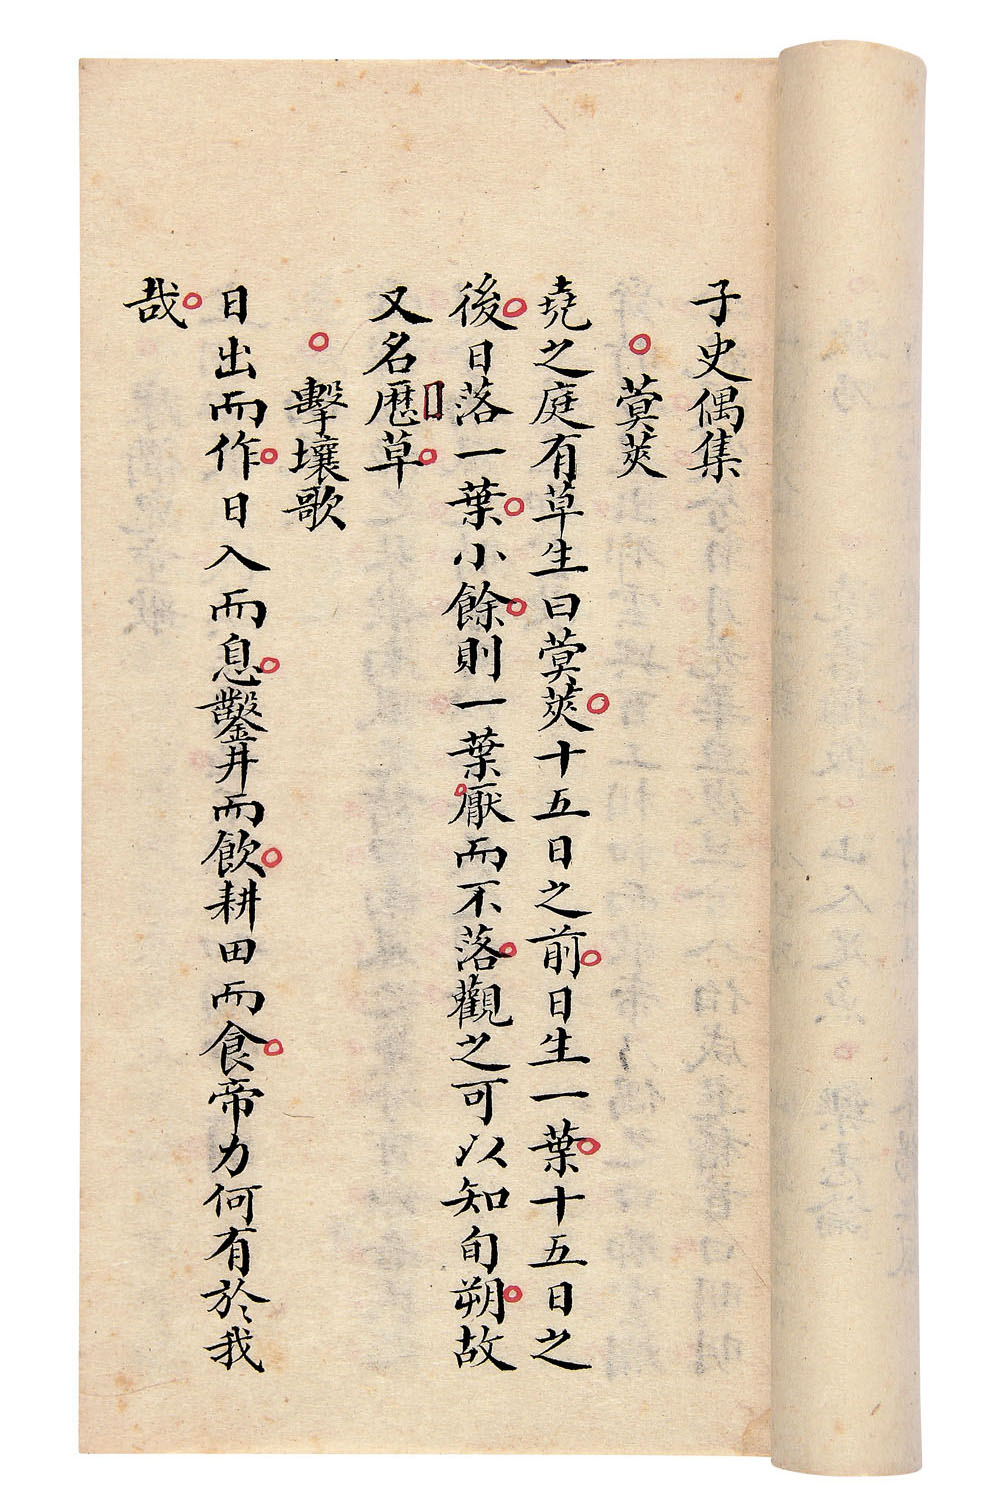 子史偶集
蓂莢
堯之庭有草生曰蓂莢十五日之前日生一葉十五日之
後日落一葉小餘則一葉厭而不落觀之可以知旬朔故
又名歷草
擊壤歌
日出而作日入而息鑿井而飲耕田而食帝力何有於我
哉